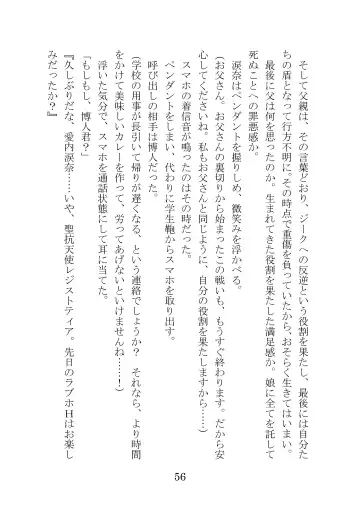 そして父親は、その言葉どおり、ジークへの反逆という役割を果たし、最後には自分た
ちの盾となって行方不明に。その時点で重傷を負っていたから、おそらく生きてはいまい。
最後に父は何を思ったのか。生まれてきた役割を果たした満足感か。娘に全てを託して
死ぬことへの罪悪感か。
涙奈はペンダントを握りしめ、微笑みを浮かべる。
(お父さん。お父さんの裏切りから始まったこの戦いも、もうすぐ終わります。だから安
心してくださいね。私もお父さんと同じように、自分の役割を果たしますから……)
スマホの着信音が鳴ったのはその時だった。
ペンダントをしまい、代わりに学生鞄からスマホを取り出す。
呼び出しの相手は博人だった。
(学校の用事が長引いて帰りが遅くなる、という連絡でしょうか? それなら、より時間
をかけて美味しいカレーを作って、労ってあげないといけませんね……!)
浮いた気分で、スマホを通話状態にして耳に当てた。
「もしもし、博人君?」
『久しぶりだな、愛内涙奈……いや、聖抗天使レジストティア。先日のラブホHはお楽し
みだったか?』
56